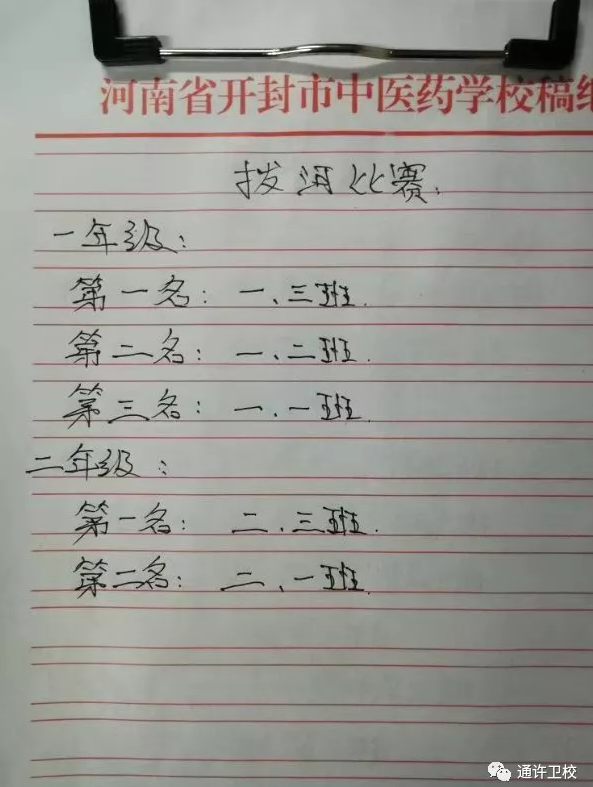 河南省开封市中医药学校稿
拨河比赛.
一年级:
第一名: 一、三班.
第二名: 一、二班.
第三名: 一、一班.
二年级:
第一名: 二、三班.
第二名: 二、一班.
通许卫校